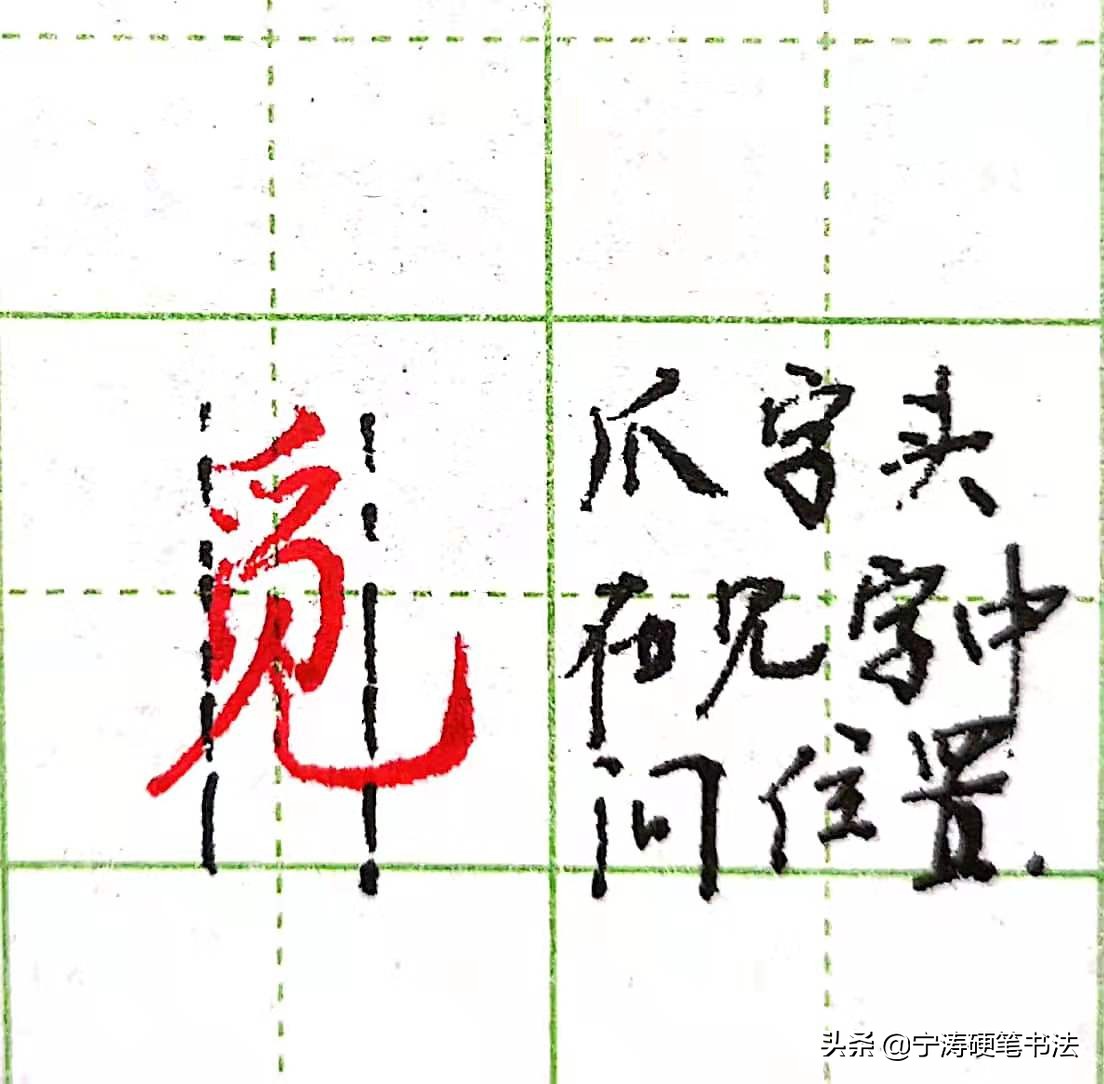 觅
爪字头
在见字中
间位置.
头条 @宁涛硬笔书法